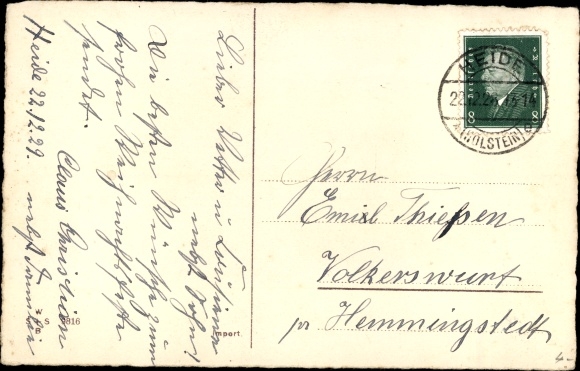 Lieber Vetter u Cousine
nebst Sohn!
Die besten Wünsche zum
frohen Weihnachtsfeste
sendet.
Claus Christian
Heide 22.12.29. nebst Familie
HEIDE
22.12.29.13-14
(HOLSTEIN)
8 8
Herrn
Emil Thießen
Volkerswurt
pr Hemmingstedt
S 3816
Import
4-